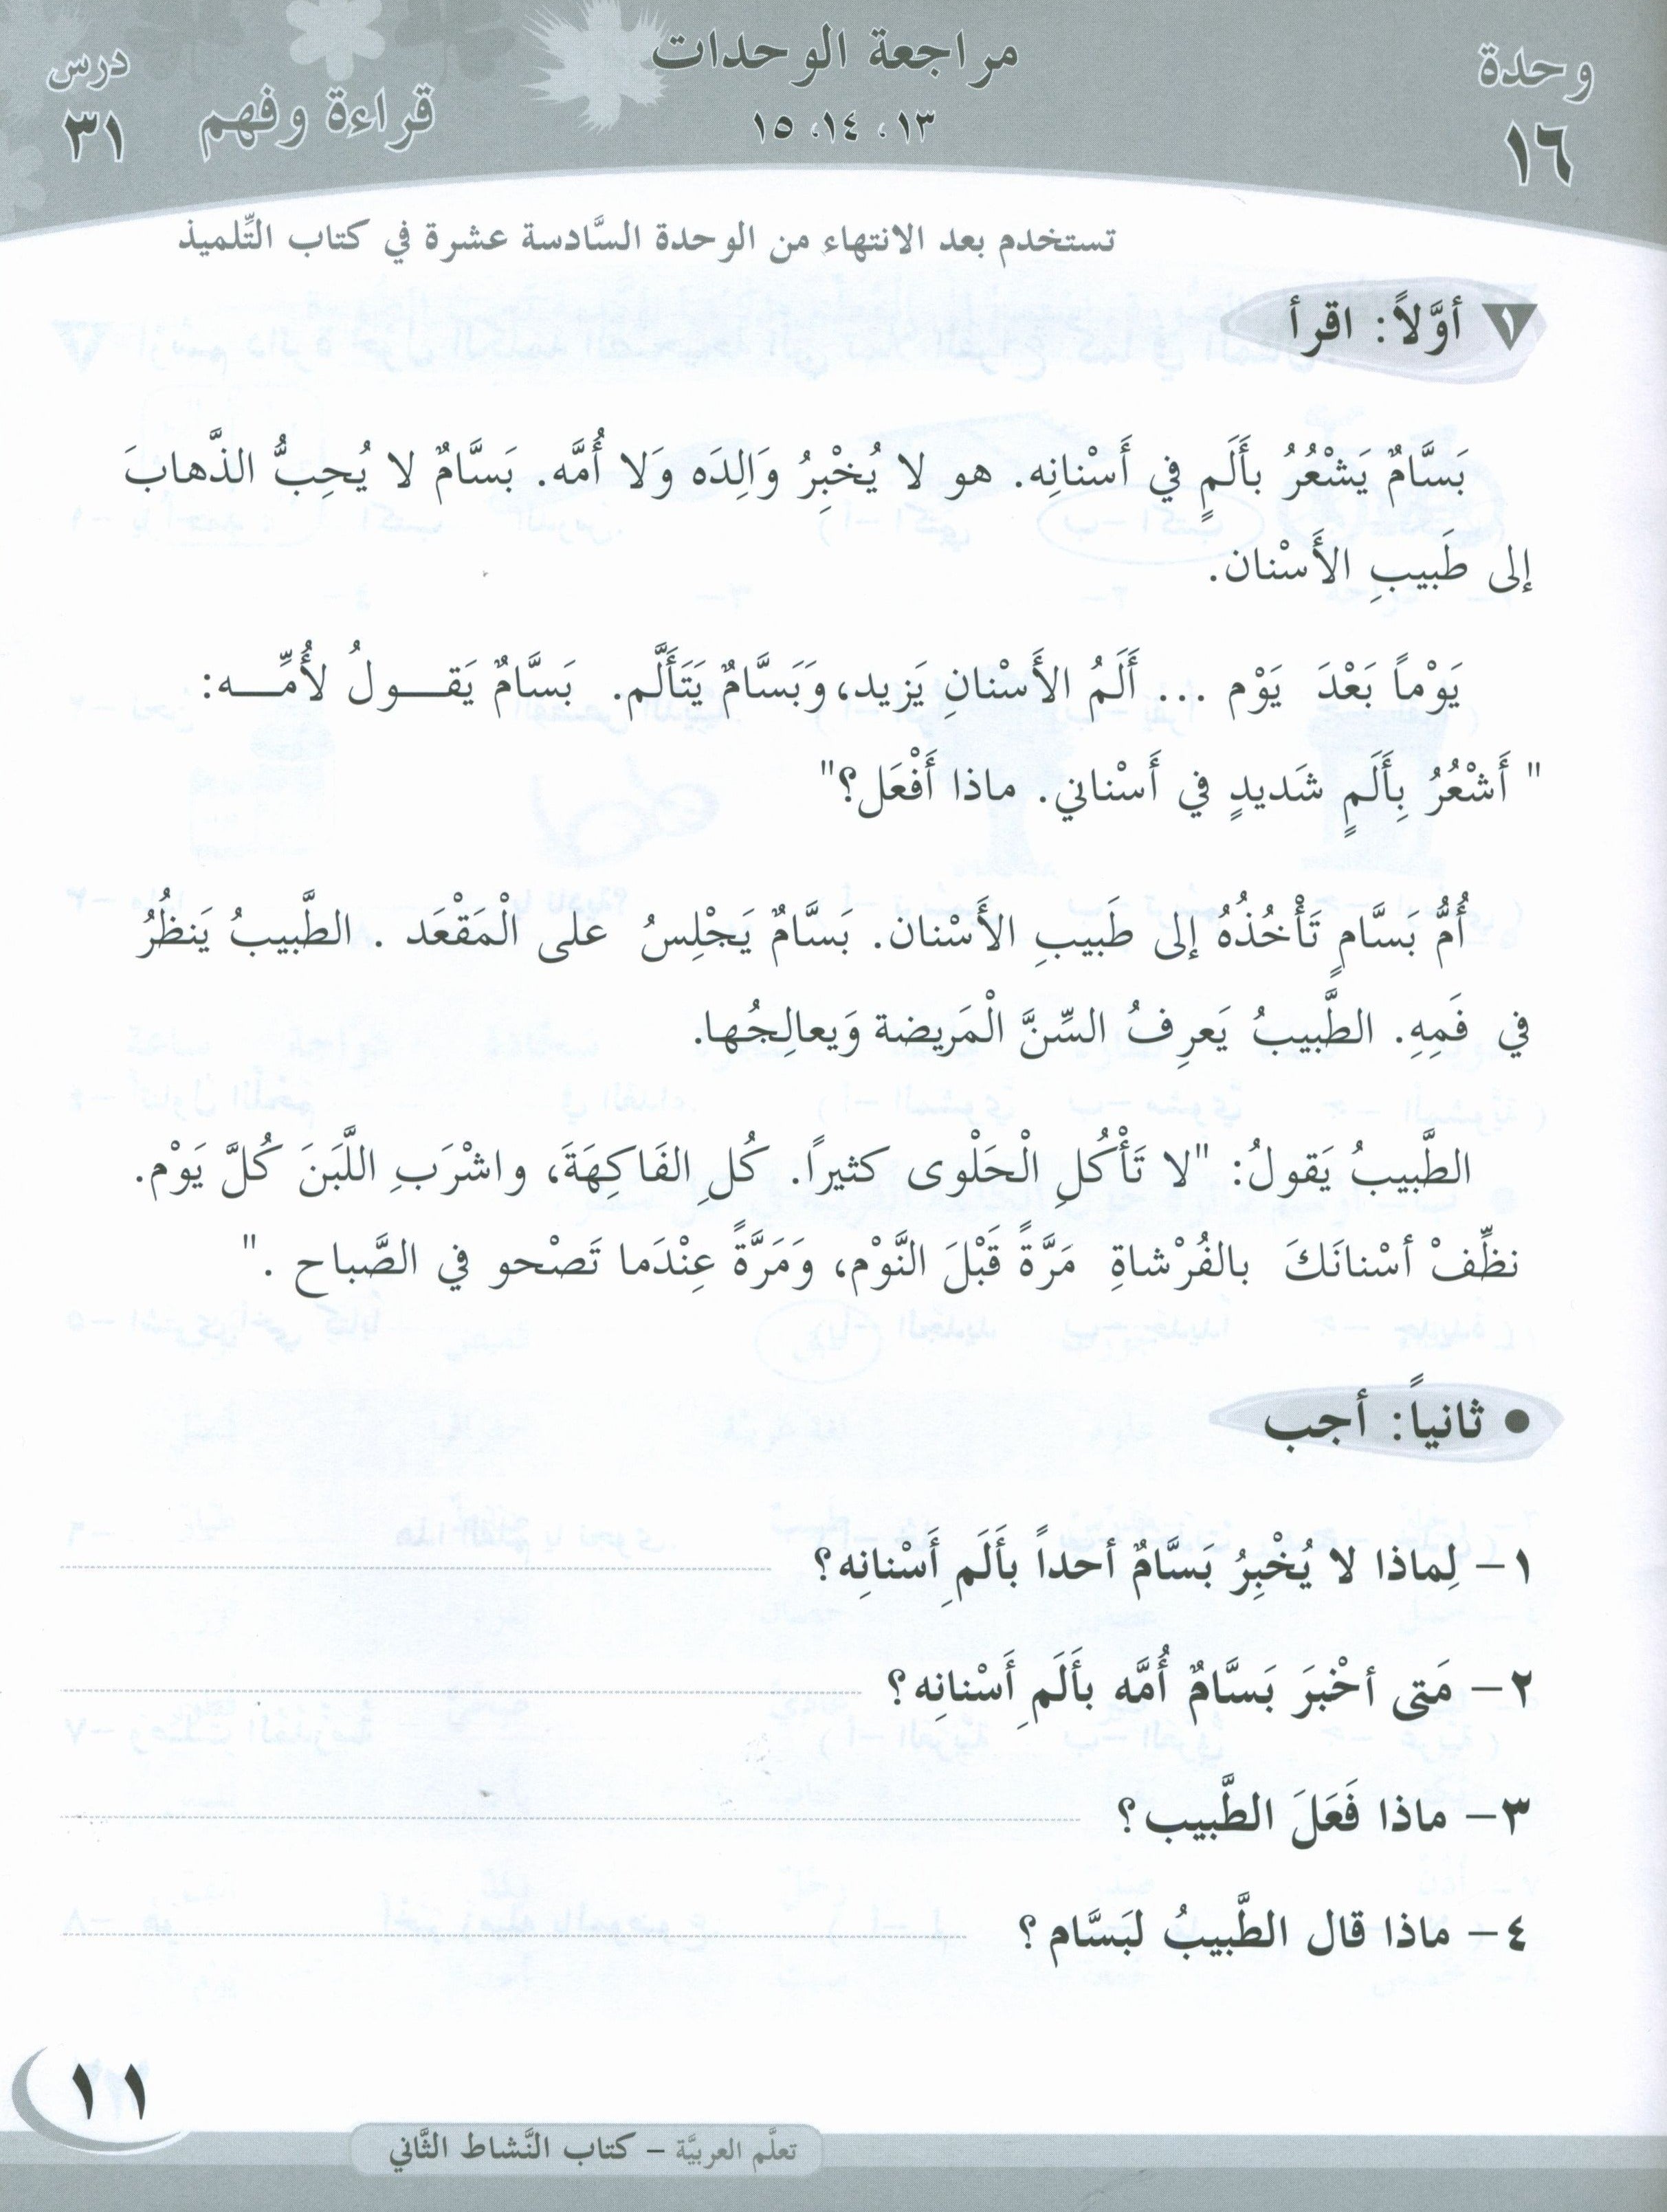 وحدة
١٦
مراجعة الوحدات
١٣، ١٤، ١٥
قراءة وفهم
درس
٣١
تستخدم بعد الانتهاء من الوحدة السَّادسة عشرة في كتاب التِّلميذ
١ أوَّلاً: اقرأ
بَسَّامٌ يَشْعُرُ بأَلَمٍ في أَسْنانِه. هو لا يُخْبِرُ وَالِدَه وَلا أُمَّه. بَسَّامٌ لا يُحِبُّ الذَّهابَ
إلى طَبيبِ الأَسْنان.
يَوْماً بَعْدَ يَوْم ... أَلَمُ الأَسْنانِ يَزيد، وَبَسَّامٌ يَتَأَلَّم. بَسَّامٌ يَقـــولُ لأُمِّـــه:
" أَشْعُرُ بِأَلَمٍ شَديدٍ في أَسْناني. ماذا أَفْعَل؟"
أُمُّ بَسَّامٍ تَأْخُذُهُ إلى طَبيبِ الأَسْنان. بَسَّامٌ يَجْلِسُ على الْمَقْعَد . الطَّبيبُ يَنظُرُ
في فَمِهِ. الطَّبيبُ يَعرِفُ السِّنَّ الْمَريضة وَيعالِجُها.
الطَّبيبُ يَقولُ: "لا تَأْكُلِ الْحَلْوى كثيرًا. كُلِ الفَاكِهَةَ، واشْرَبِ اللَّبَنَ كُلَّ يَوْم.
نظِّفْ أسْنانَكَ بالفُرْشاةِ مَرَّةً قَبْلَ النَّوْم، وَمَرَّةً عِنْدَما تَصْحو في الصَّباح ."
• ثانياً: أجب
١- لِماذا لا يُخْبِرُ بَسَّامٌ أحداً بأَلَمِ أَسْنانِه؟
٢- مَتى أخْبرَ بَسَّامٌ أُمَّه بأَلَمِ أَسْنانِه؟
٣- ماذا فَعَلَ الطَّبيب؟
٤- ماذا قال الطَّبيبُ لبَسَّام؟
١١
تعلَّم العربيَّة – كتاب النَّشاط الثَّاني